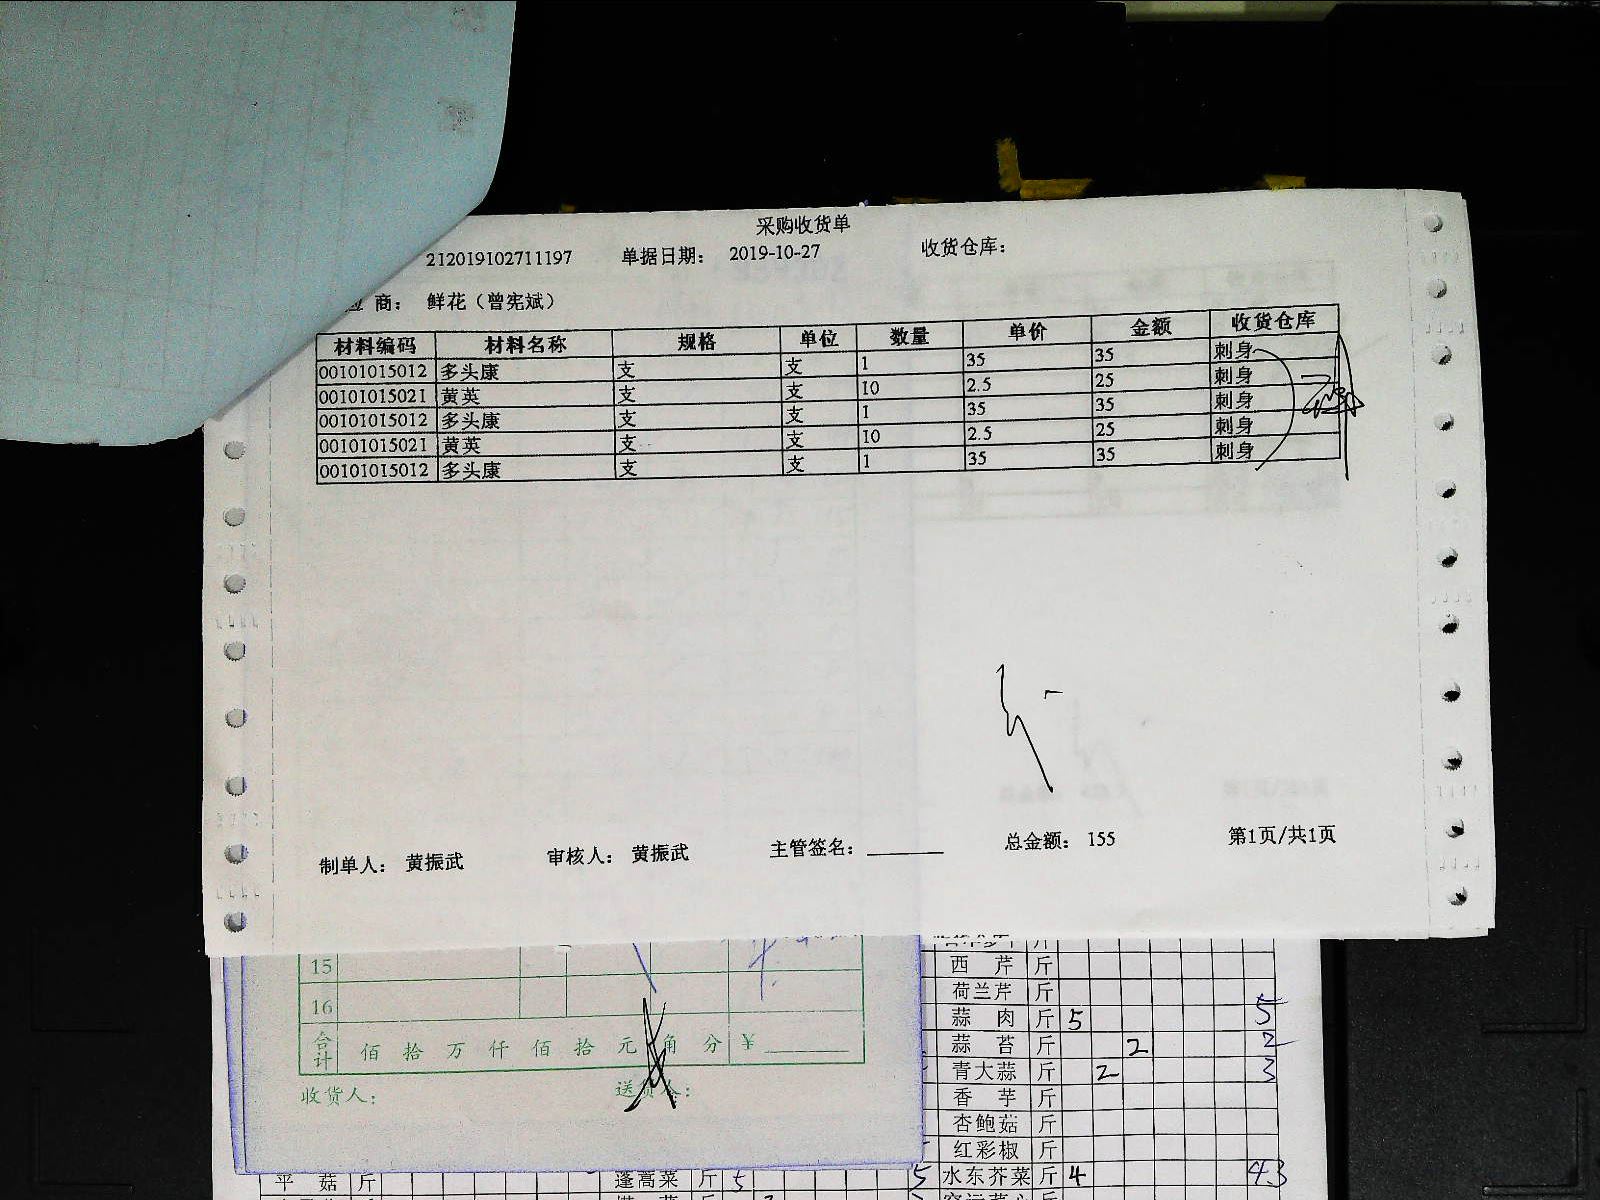 采购收货单
212019102711197 单据日期： 2019-10-27 收货仓库：
商： 鲜花（曾宪斌）
材料编码 材料名称 规格 单位 数量 单价 金额 收货仓库
00101015012 多头康 支 支 1 35 35 刺身
00101015021 黄英 支 支 10 2.5 25 刺身
00101015012 多头康 支 支 1 35 35 刺身
00101015021 黄英 支 支 10 2.5 25 刺身
00101015012 多头康 支 支 1 35 35 刺身
制单人： 黄振武 审核人： 黄振武 主管签名： 总金额： 155 第1页/共1页
15
16
合计 佰 拾 万 仟 佰 拾 元 角 分 ¥
收货人： 送货人：
西 芹 斤
荷兰芹 斤
蒜 肉 斤 5 5
蒜 苔 斤 2 2
青大蒜 斤 2 3
香 芋 斤
杏鲍菇 斤
红彩椒 斤
平 菇 斤 蓬蒿菜 斤 5 5 水东芥菜 斤 4 43